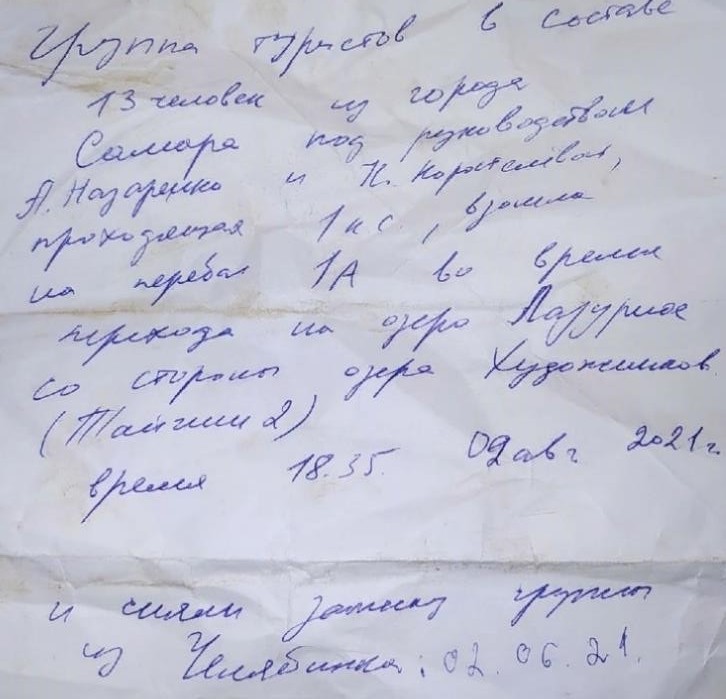 Группа туристов в составе
13 человек из города
Самара под руководством
А. Назаренко и Н.
проходящая 1 кс, взошла
на перевал 1А во время
перехода на озеро Лазурное
со стороны озера Художников
(Тайгиш 2)
время 18.35. 02 авг 2021 г.
и сняли записку группы
из Челябинска: 02.06.21.